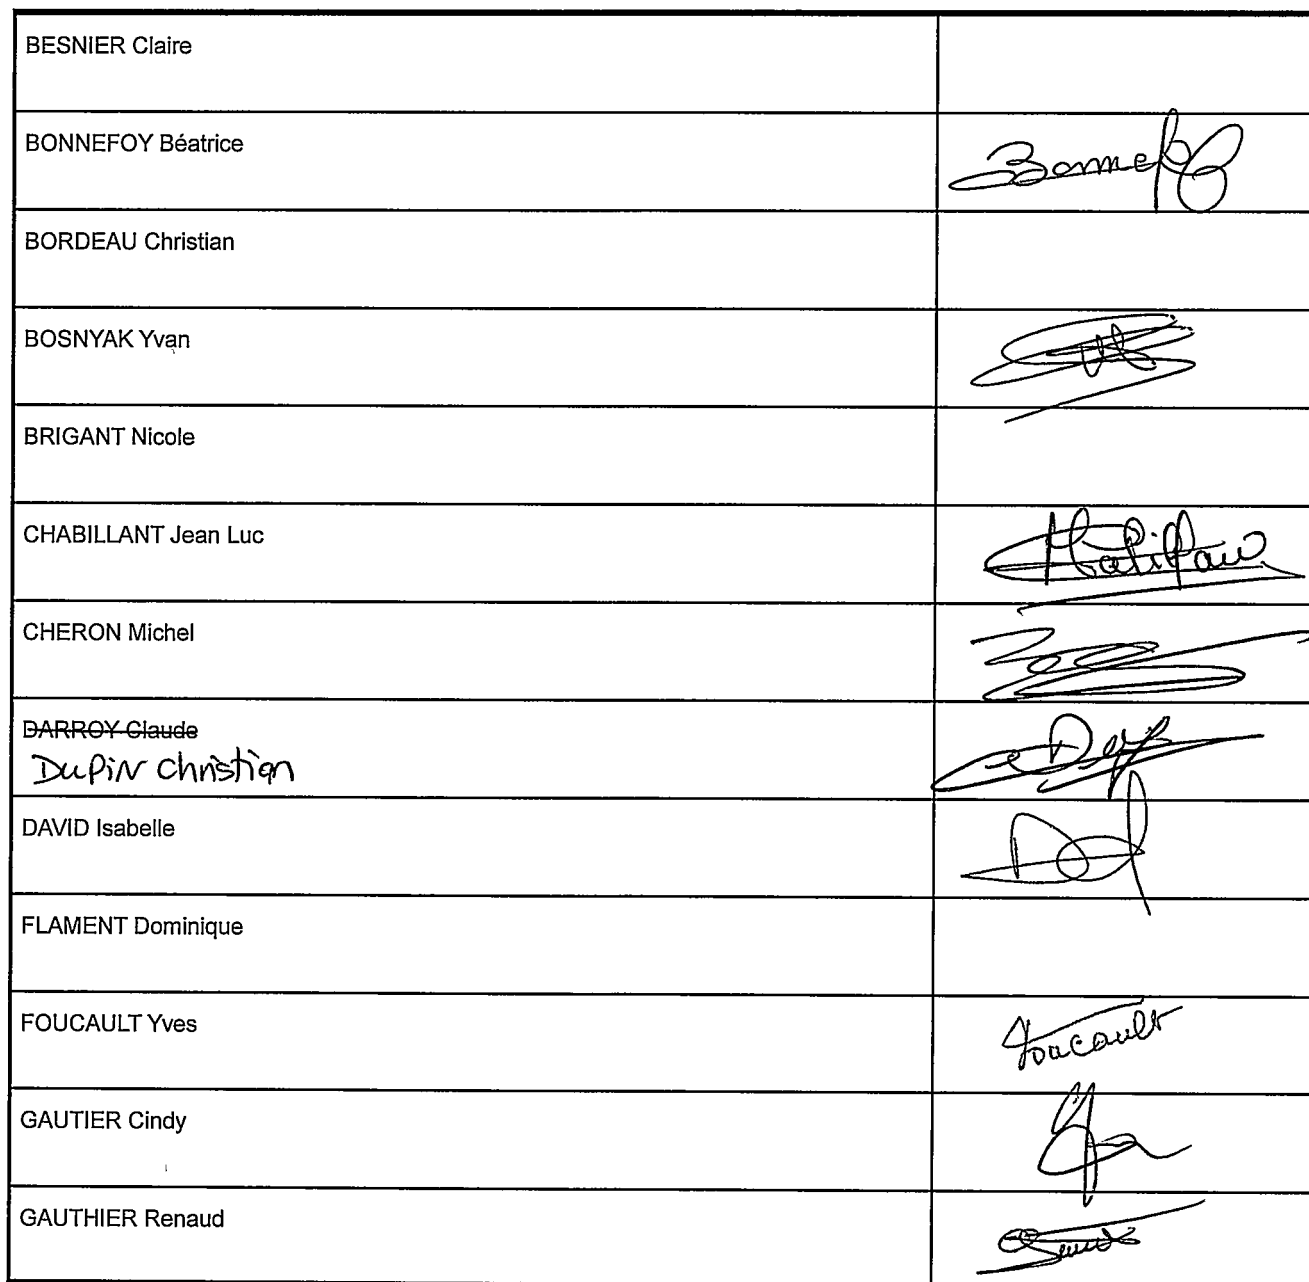 BESNIER Claire
BONNEFOY Béatrice
Bonnef
BORDEAU Christian
BOSNYAK Yvan
BRIGANT Nicole
CHABILLANT Jean Luc
CHERON Michel
DARROY Claude
DUPIN Christian
DAVID Isabelle
FLAMENT Dominique
FOUCAULT Yves
Foucault
GAUTIER Cindy
GAUTHIER Renaud